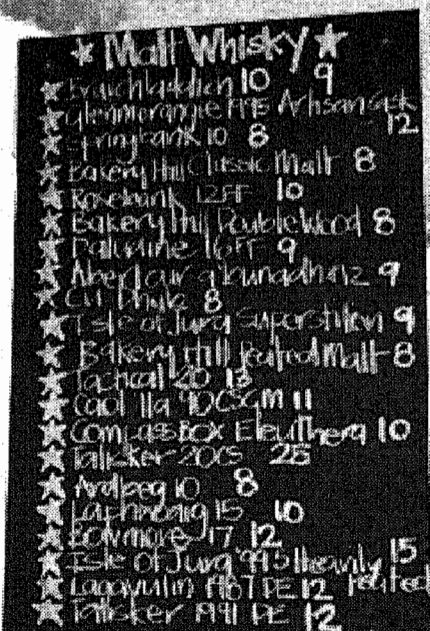 Malt Whisky
Bruichladdich 10 9
Glenmorangie 1995 Artisan Cask
12
Springbank 10 8
Bakery Hill Classic Malt 8
Rosebank 12FF 10
Bakery Hill DoubleWood 8
9
Aberlour a'bunadh 9
8
Isle of Jura Superstition 9
Bakery Hill Peated Malt 8
20 13
Caol Ila 11
Compass Box Eleuthera 10
Talisker 20CS 25
Ardbeg 10 8
Laphroaig 15 10
Bowmore 17 12
Isle of Jura Heavily 15
Lagavulin 1987 DE 12 Peated
Talisker 1991 DE 12